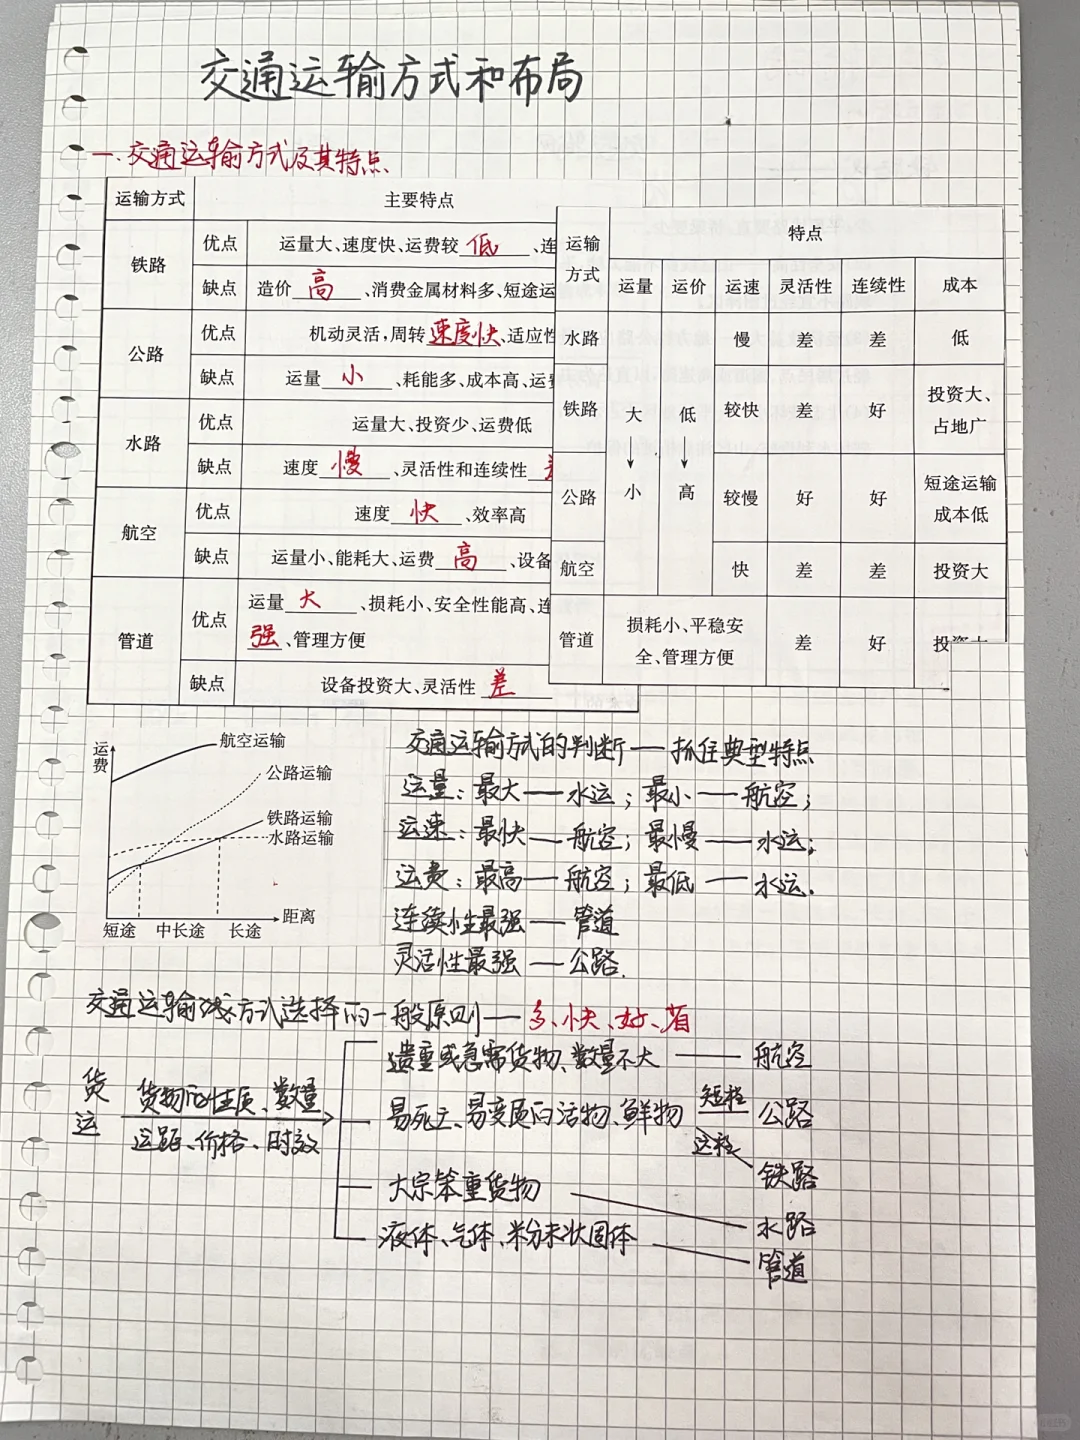 交通运输方式和布局
一、交通运输方式及其特点
运输方式 主要特点
铁路 优点 运量大、速度快、运费较低、连
缺点 造价高、消费金属材料多、短途运
公路 优点 机动灵活,周转速度快、适应性
缺点 运量小、耗能多、成本高、运
水路 优点 运量大、投资少、运费低
缺点 速度慢、灵活性和连续性
航空 优点 速度快、效率高
缺点 运量小、能耗大、运费高、设备
管道 优点 运量大、损耗小、安全性能高、连
强、管理方便
缺点 设备投资大、灵活性差
运输方式 特点
运量 运价 运速 灵活性 连续性 成本
水路 慢 差 差 低
铁路 较快 差 好 投资大、占地广
大 低
小 高
公路 较慢 好 好 短途运输成本低
航空 快 差 差 投资大
管道 损耗小、平稳安全、管理方便 差 好
运费
航空运输
公路运输
铁路运输
水路运输
距离
短途 中长途 长途
交通运输方式的判断——抓住典型特点
运量:最大——水运;最小——航空;
运速:最快——航空;最慢——水运;
运费:最高——航空;最低——水运.
连续性最强——管道
灵活性最强——公路.
交通运输线方式选择的一般原则——多、快、好、省
货运 货物的性质、数量
运距、价格、时效
贵重或急需货物、数量不大——航空
易死亡、易变质的活物、鲜物 短程 公路
远程 铁路
大宗笨重货物 水路
液体、气体、粉末状固体 管道